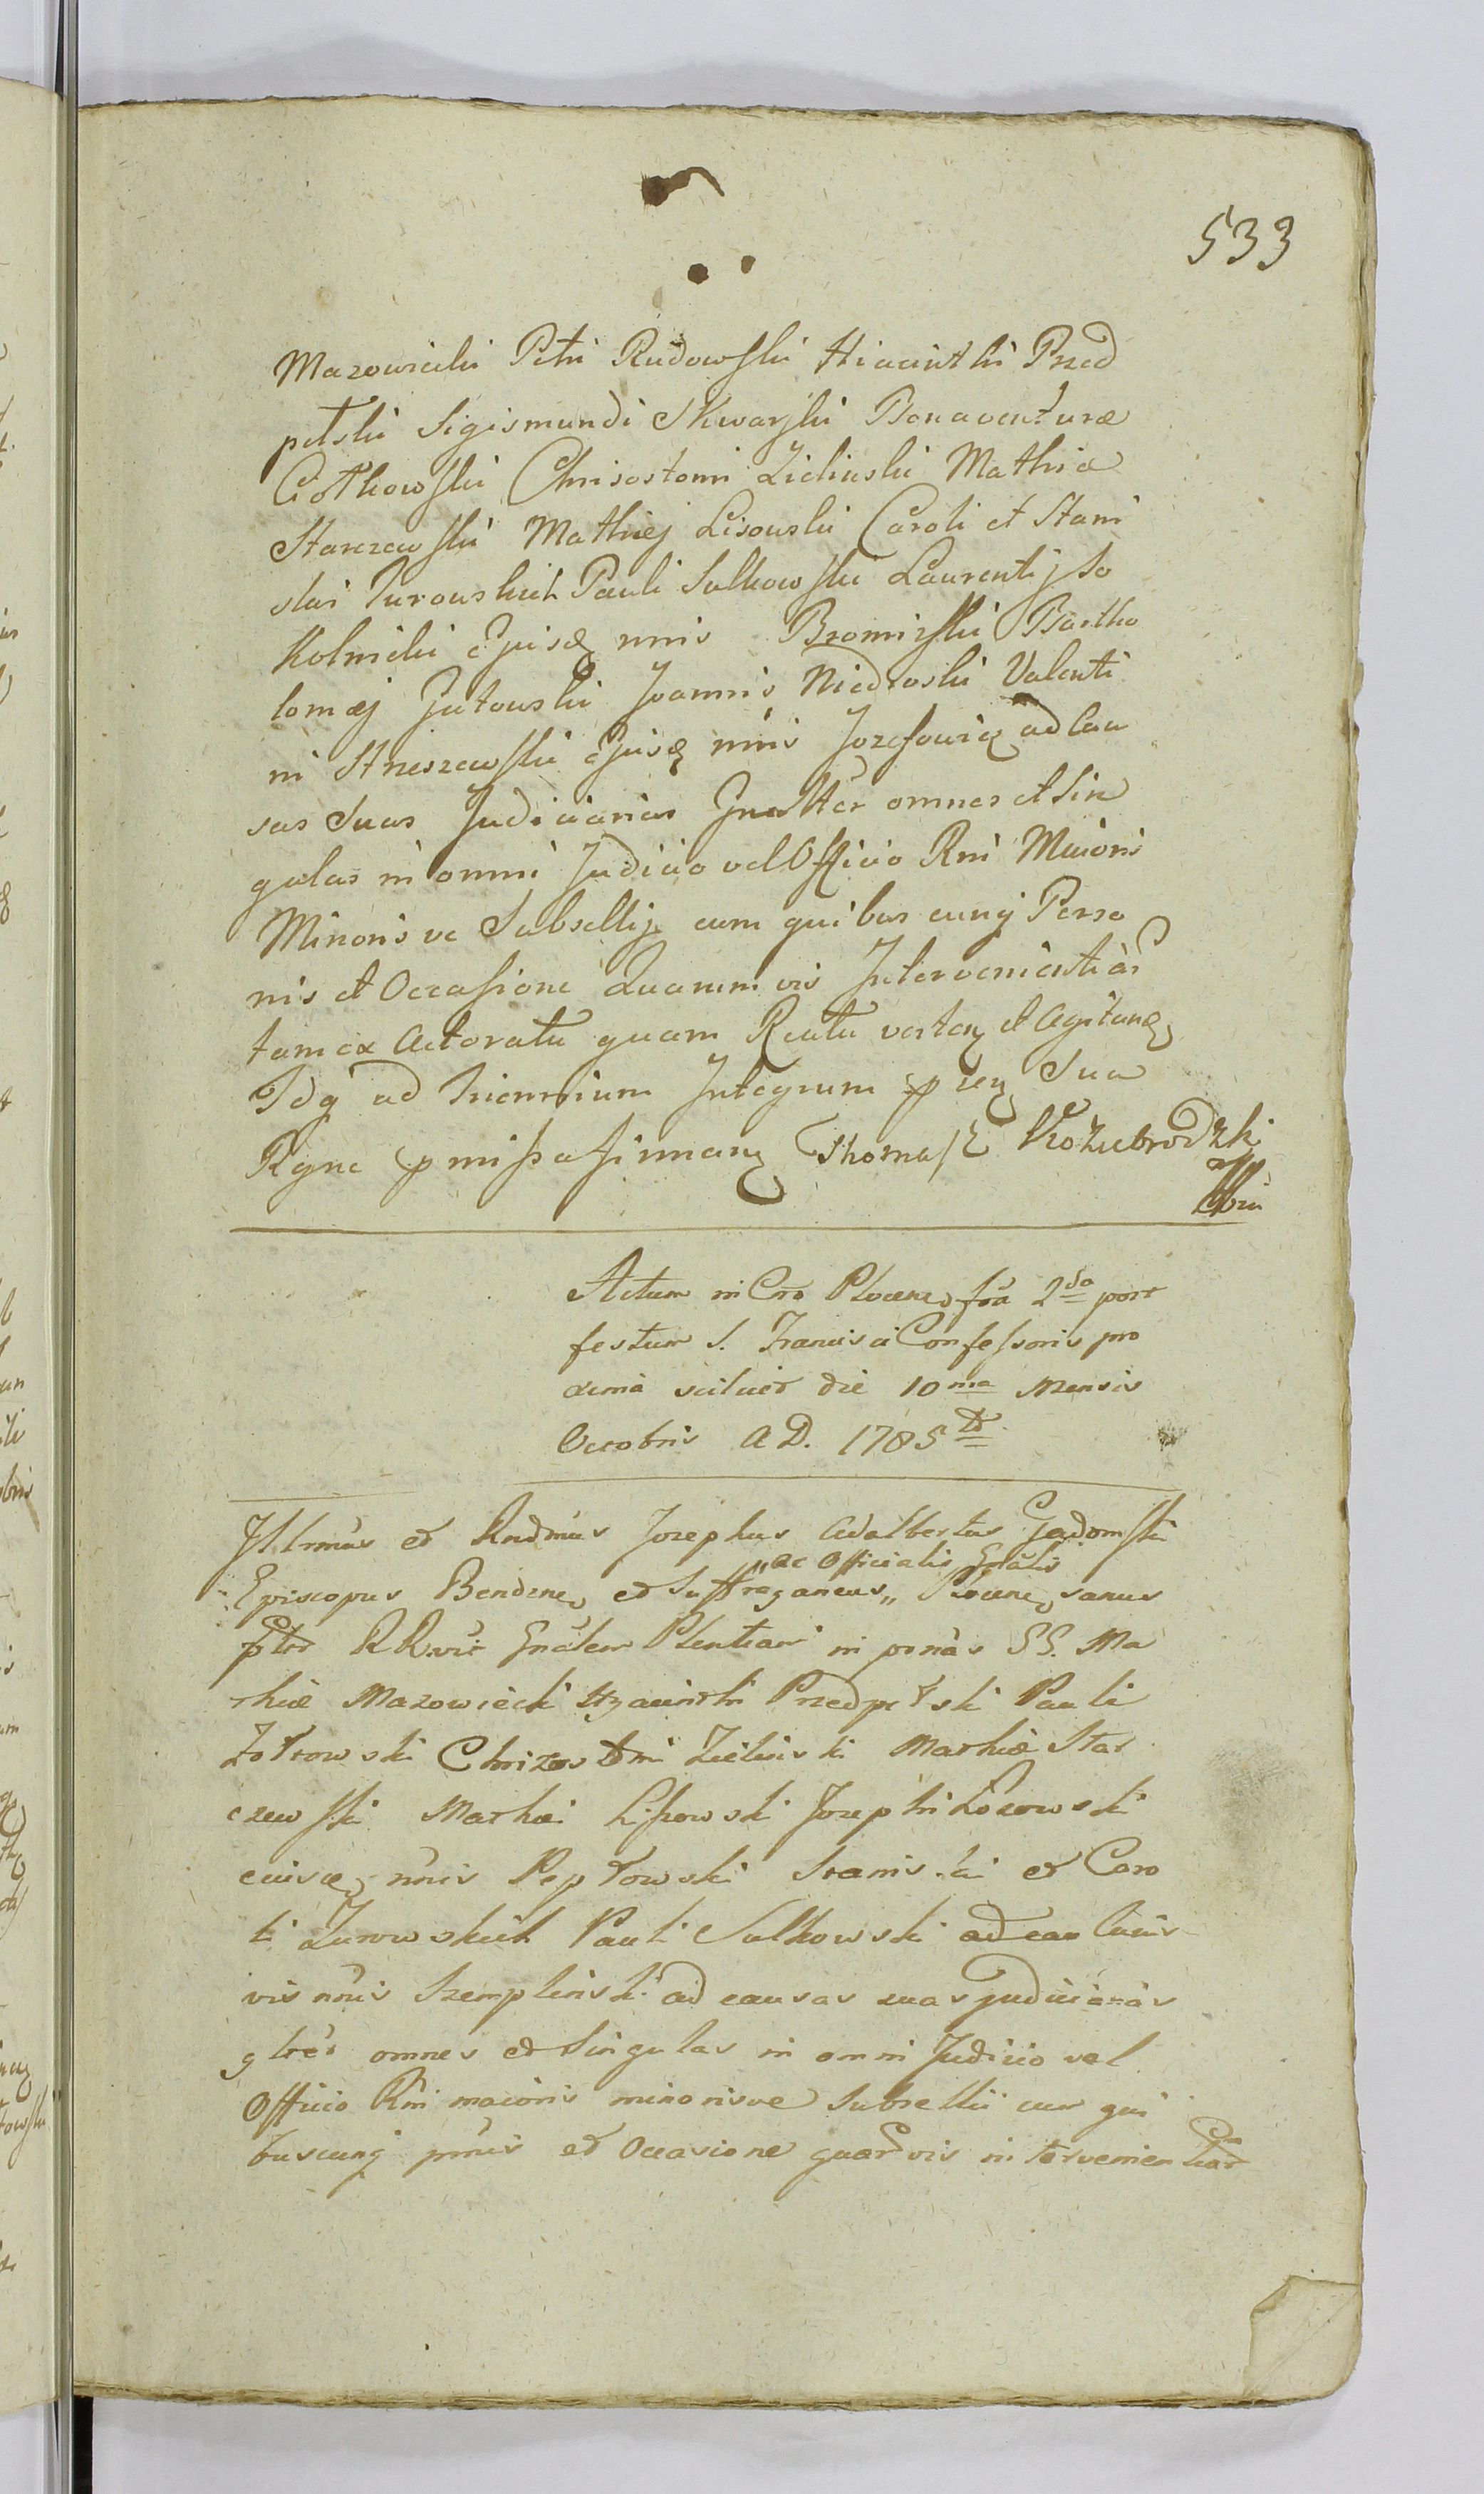 533
Mazowiecki Petri Rudowski Hiacinthi Przed
petski Sigismundi Skwarski Bonaventuræ
Ciołkowski Chrisostomi Zielinski Mathiæ
Starczewski Mathiej Lisowski Caroli et Stani
slai Zurowskich Pauli Sulkowski Laurentij So
kolnicki cujusq nnis Bromirski Bartho
lomæj Gutowski Joannis Niedroski Valenti
ni Strzeszewski cujusq nnis Jozefowicz ad Cau
sas Suas Judiciarias Gnaliter omnes et Sin
gulas in omni Judicio vel Officio Rni Maioris
Minoris ve Subsellij cum quibus cunq Perso
nis et Occasione Quarumvis Intervenientiar
tam ex Actoratu quam Reatu verten et Agitan
Idq ad Triennium Integrum pren Sua
Rgne pmissa firman Thomas Kozubrodzki
Actum in Cro Plocen fria 2da post
festum S. Francisci Confessoris pro
xima scilicet die 10ma Mensis
Octobris A D. 1785to
Illrmus et Rndmus Josephus Adalbertus Gadomski
ac Officialis Gnalis
Episcopus Bendene et Suffraganeus „ Plocene sanus
RR Gnalem Plentiam in ponas SS. Ma
thiæ Mazowiecki Hyacinthi Przedpełski Pauli
Żołtowski Chrizostomi Zielinski Mathiæ Star
czewski Mathæi Lisowski Josephi Łosowski
cuiusq nnis Pepłowski Stanislai et Caro
li Zurowskich Pauli Sulkowski ad eas cuius
vis nnis Szemplinski ad causas suas judiciarias
gltes omnes et Singulas in omni Judicio vel
Officio Rni maioris minorisve Subsellii cum qui
buscunq pnis et Occasione quarvis intervenientiar